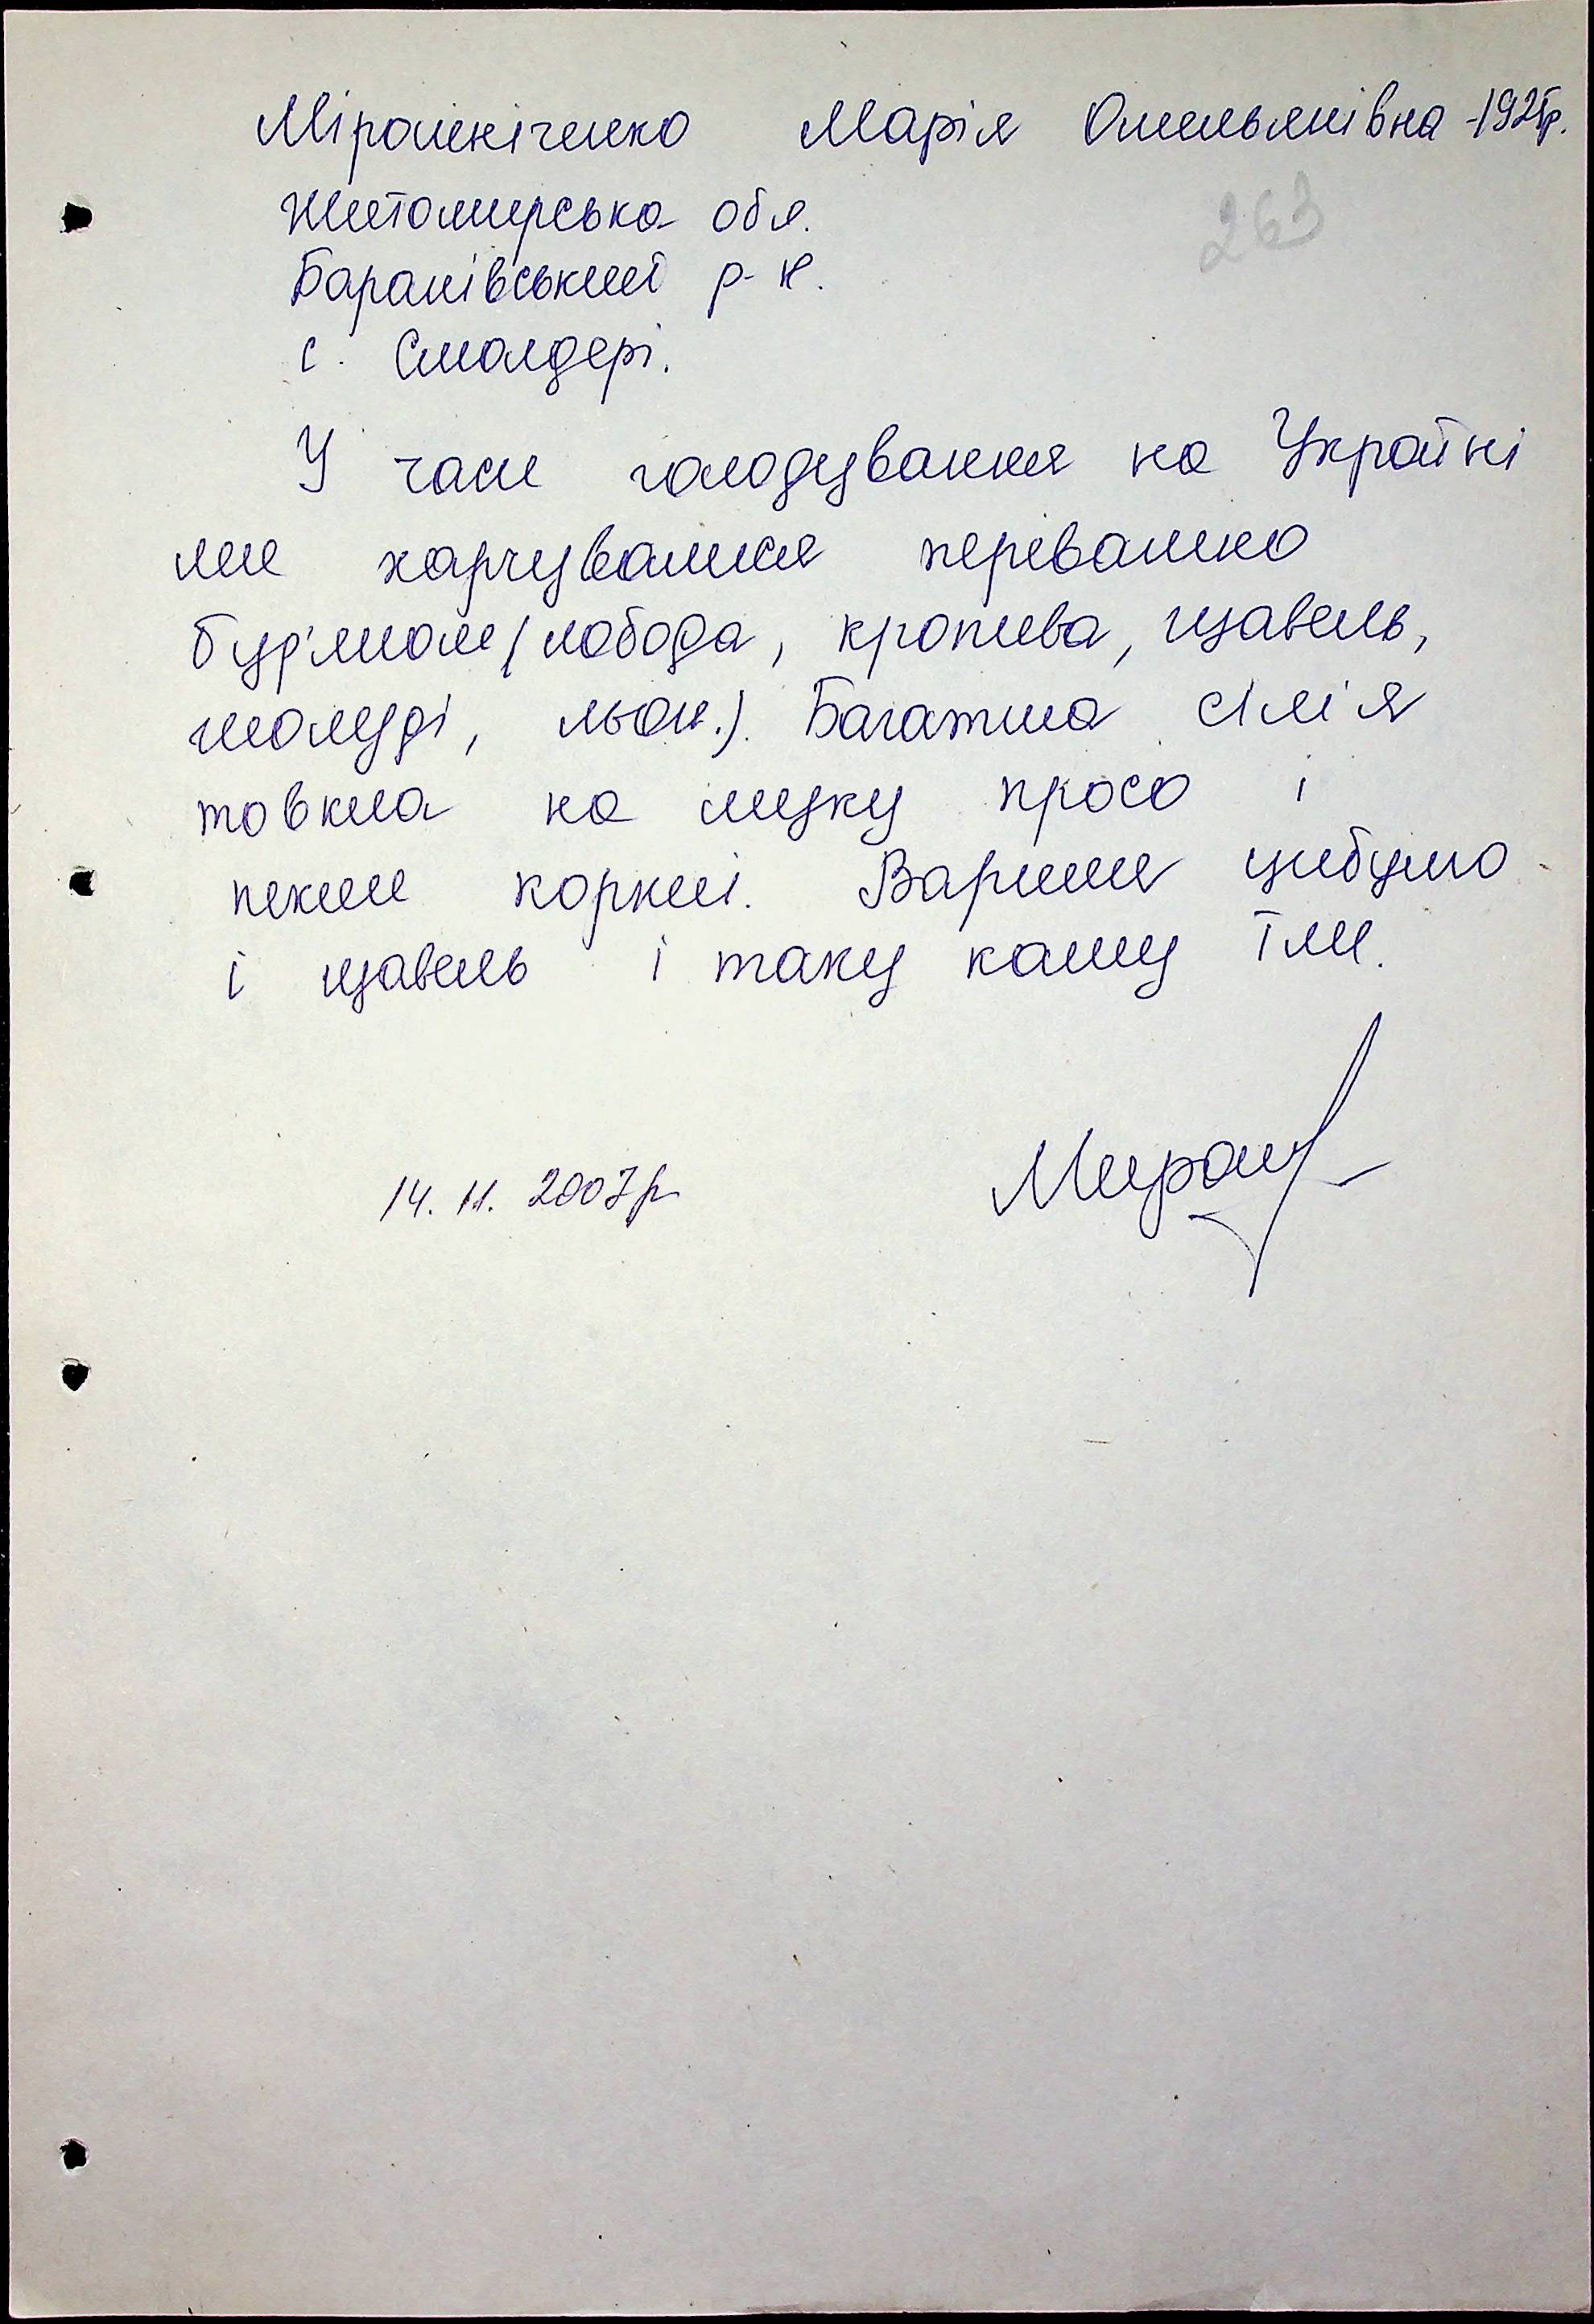 Мірошніченко Марія Омельянівна - 1925р.
263
Житомирська обл.
Баранівський р-н.
с. Смолдері.
У часи голодування на Україні
ми харчувалися переважно
бур'яном (лобода, кропива, щавель,
жолуді, льон.). Багатша сім'я
товкла на муку просо і
пекли коржі. Варили цибулю
і щавель і таку кашу їли.
14. 11. 2007р